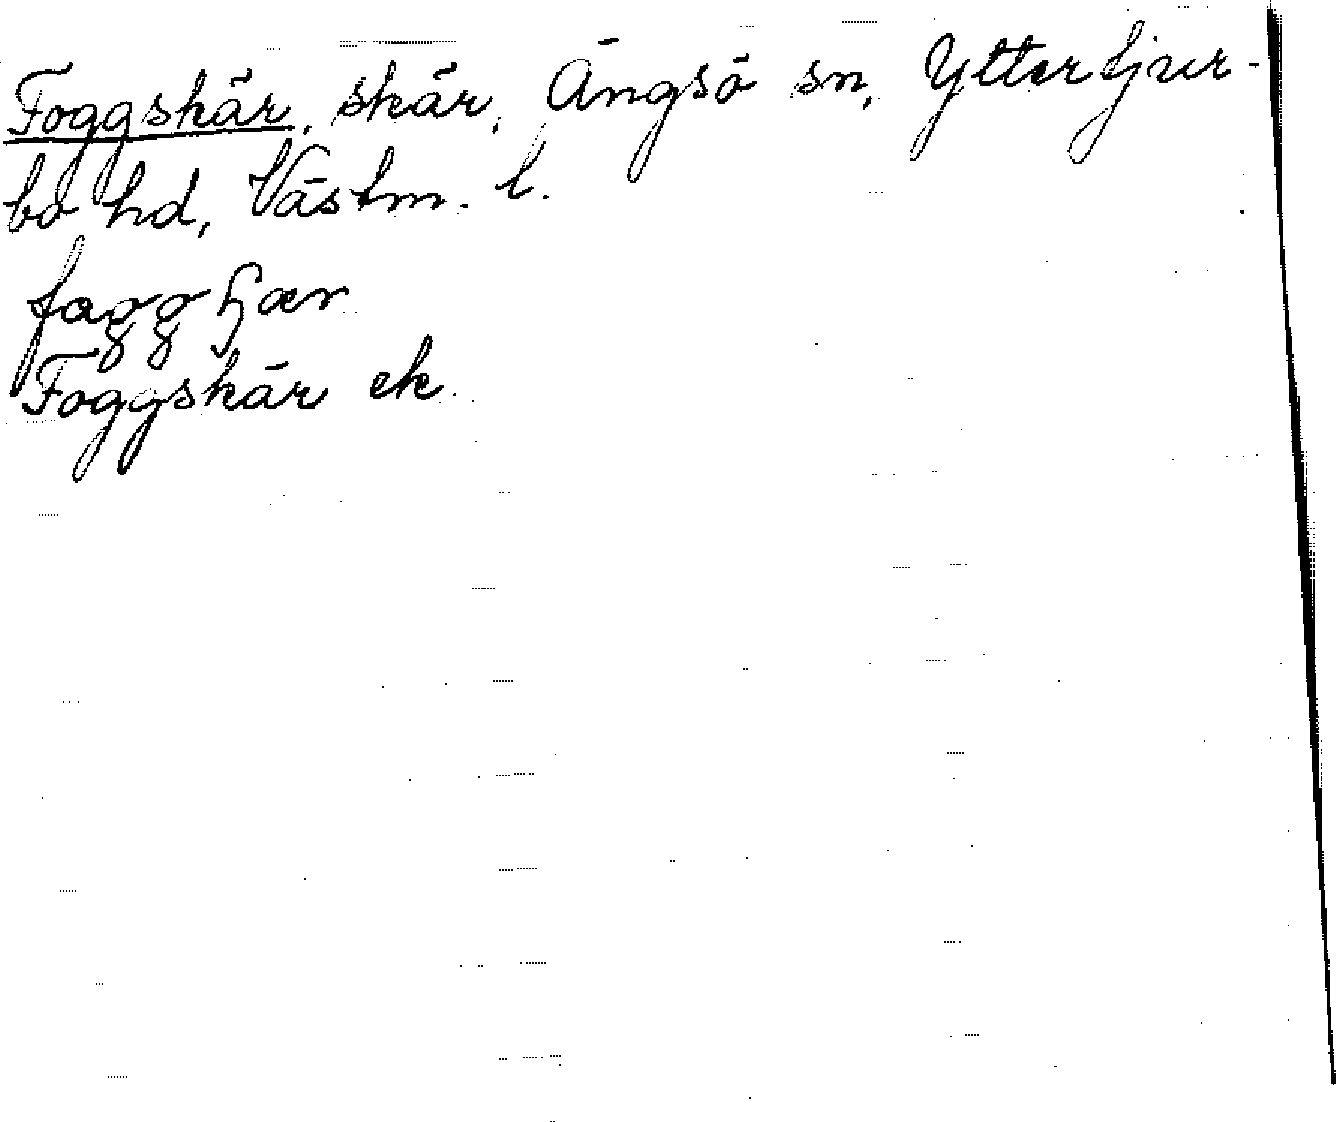 Foggskär, skär, Ängsö sn, Yttertjur-
bo hd, Västm. l.
faggɧær
Foggskär ek.